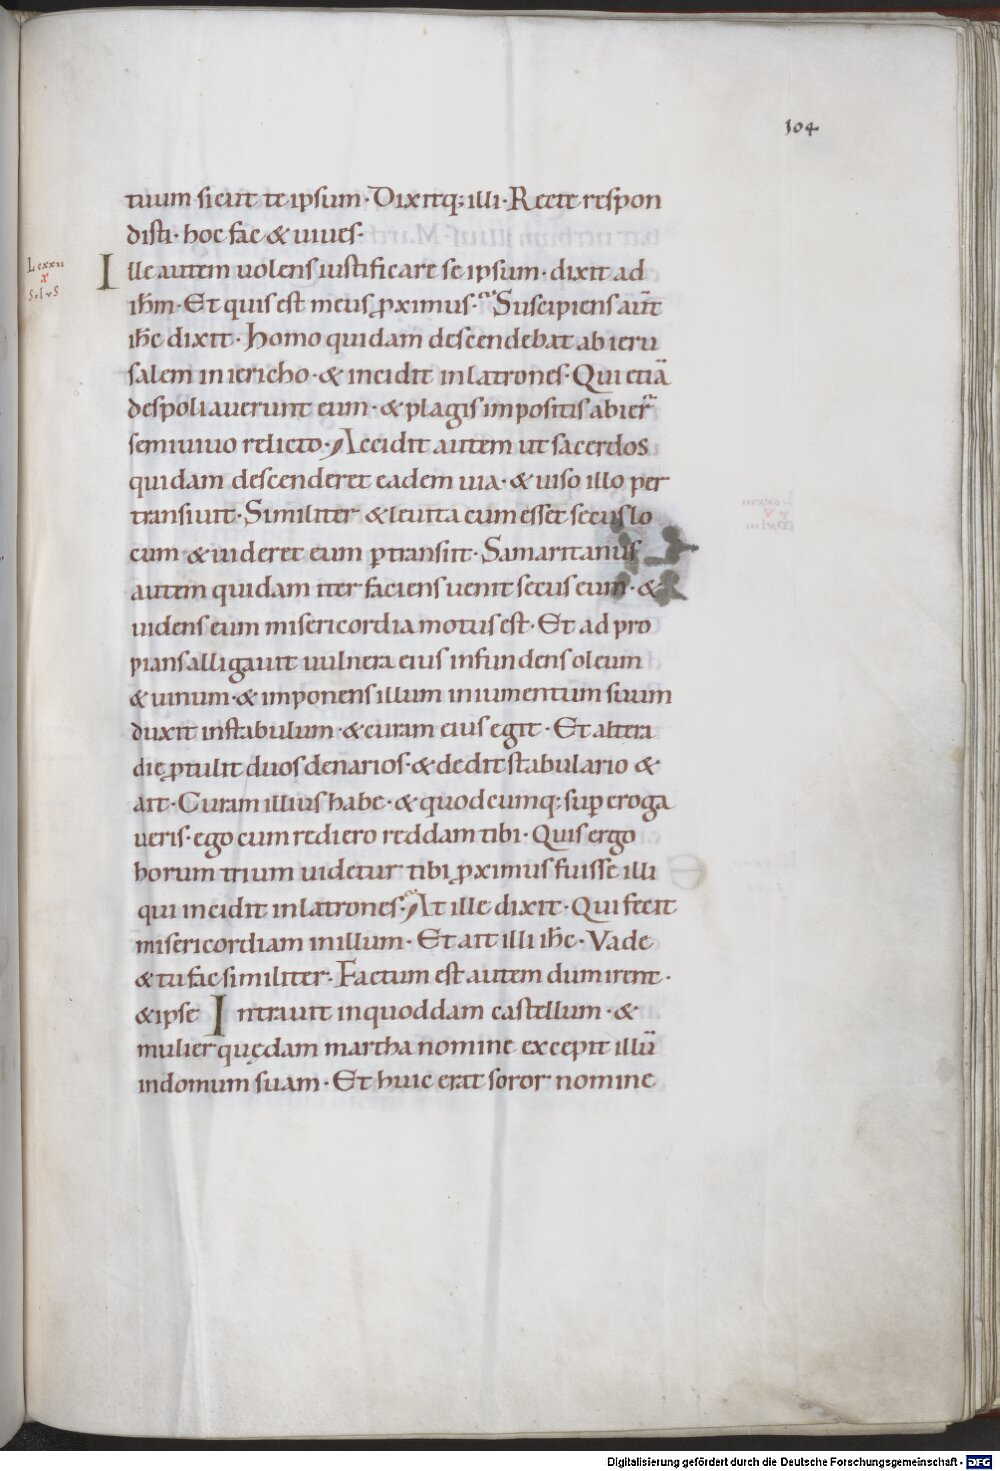 104
tuum sicut te ipsum· Dixitq; illi· Recte respon
disti· hoc fac & uiues·
Lcxxii
x
Solus
Ille autem uolens iustificare se ipsum· dixit ad
ihm̄· Et quis est meus p̱ximus· Suscipiens aut̄
ihc̄ dixit· Homo quidam descendebat ab ieru
salem in iericho· & incidit in latrones· Qui etiā
despoliauerunt eum· & plagis impositis abier̄
semiuiuo relicto· Accidit autem ut sacerdos
quidam descenderet eadem uia· & uiso illo per
transiuit· Similiter & leuita cum esset secus lo
cum & uideret eum p̱transiit· Samaritanus
autem quidam iter faciens uenit secus eum· &
uidens eum misericordia motus est· Et ad pro
pians alligauit uulnera eius infundens oleum
& uinum· & imponens illum in iumentum suum
duxit in stabulum· & curam eius egit· Et altera
die p̱tulit duos denarios· & dedit stabulario &
ait· Curam illius habe· & quodcumq; sup̱ eroga
ueris· ego cum rediero reddam tibi· Quis ergo
horum trium uidetur tibi p̱ximus fuisse illi
qui incidit in latrones· At ille dixit· Qui fecit
misericordiam in illum· Et ait illi ihc̄· Vade
& tu fac similiter· Factum est autem dum irent·
& ipse Intrauit in quoddam castellum· &
mulier quędam martha nomine excepit illū
in domum suam· Et huic erat soror nomine
Digitalisierung gefördert durch die Deutsche Forschungsgemeinschaft - DFG